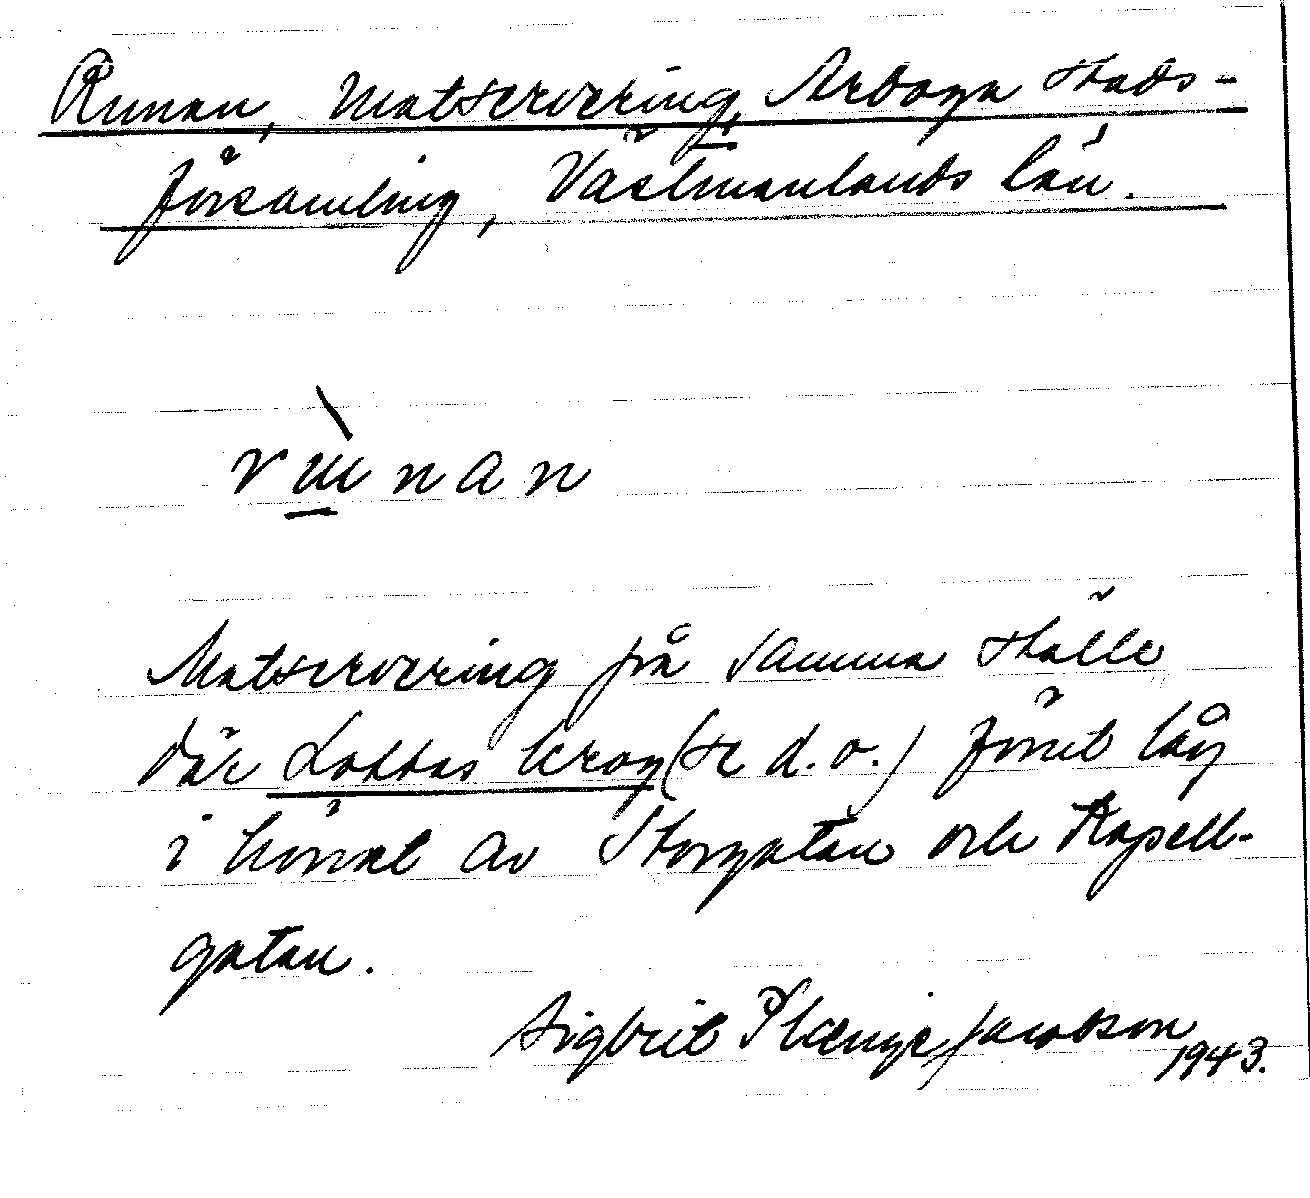 Runan, Matservering, Arboga stads-
församling, Västmanlands län.
runan
Matservering på samma ställe
där Lottas krog (se d.o.) förut låg
i hörnet av Storgatan och Kapell-
gatan.
Sigbrit Plænge Jacobson
1943.